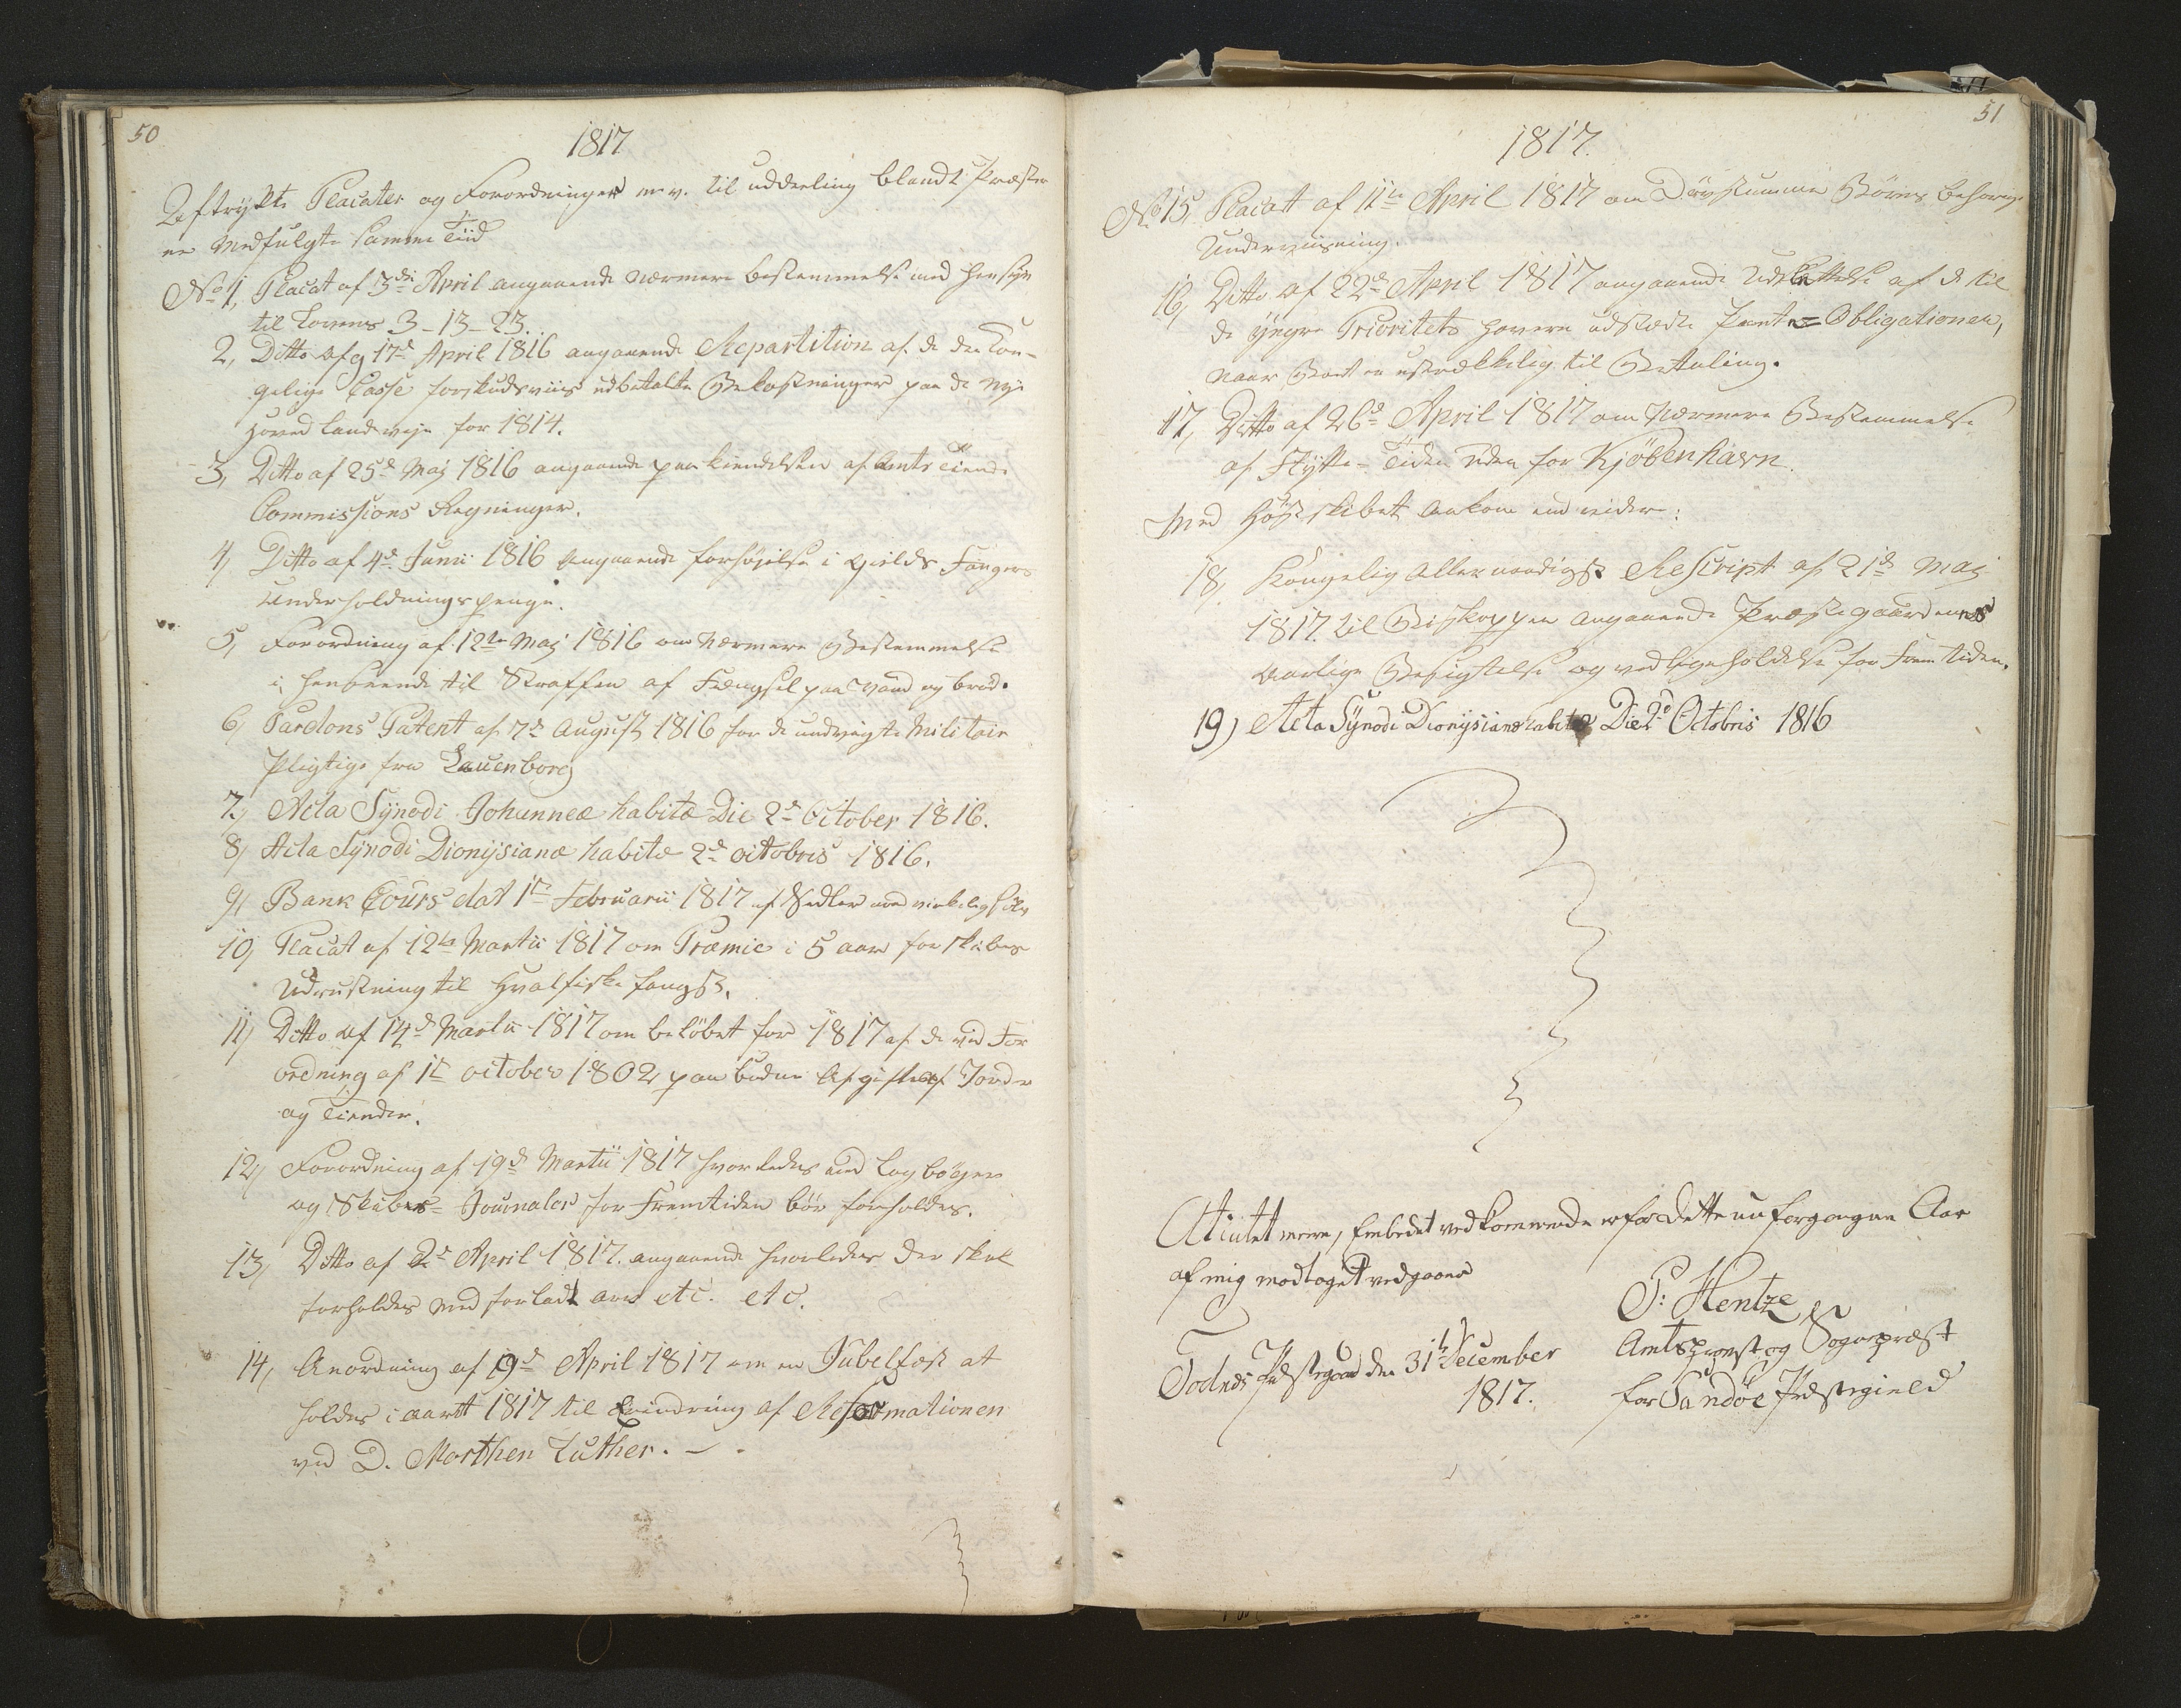 50
1817
Aftrykte Placater og Forordninger m. v. til uddeeling blandt Præster
ne Medfulgte samme Tiid
No 1, Placat af 3die April angaaende nærmere bestemmelse med hensyn
til Lovens 3-13-23.
2, Ditto af 17d April 1816 angaaende Repartition af de den Kon-
gelige Casse forskudsviis udbetalte Bekostninger paa de nye
Hoved Landeveje for 1814.
3, Ditto af 25d Maj 1816 angaaende paakiendelsen af Amts Tiende
Commissions Regninger.
4, Ditto af 4d Junii 1816 Angaaende forhøjelse i Gields Fangers
Underholdningspenge.
5, Forordning af 12te Maj 1816 om nærmere Bestemmelse
i henseende til Straffen af Fængsel paa Vand og brød.
6, Pardons Patent af 7d August 1816 for de undvigte Militair
Pligtige fra Lauenborg
7, Acta Synodi Johanneæ habitæ Die 2d October 1816.
8, Acta Synodi Dionysianæ habitæ 2d octobris 1816.
9, Bank Cours dat 1te Februarii 1817 af Sedler mod virkelig Sølv
10, Placat af 12te Martii 1817 om Præmie i 5 aar for skibes
Udrustning til Hvalfiske fangst.
11, Ditto af 14d Martii 1817 om beløbet for 1817 af de ved For
ordning af 1te october 1802 paabudne Afgifter af Jorder
og Tiender.
12, Forordning af 19d Martii 1817 hvorledes med Logbøger
og Skibs-Journaler for Fremtiden bør forholdes.
13, Ditto af 2d April 1817. angaaende hvorledes der skal
forholdes med forladt arv etc. etc.
14, Anordning af 9d April 1817 om en Jubelfæst at
holdes i aaret 1817 til Erindring af Reformationen
ved D. Morthen Luther. -
51
1817.
No 15, Placatt af 11te April 1817 om Døvstumme Børns behørige
Underviisning.
16, Ditto af 22d April 1817 angaaende Udslettelse af de til
de yngre Prioritets Havere udstædte Pante-Obligationer,
naar Boet er ustrækkelig til Betaling.
17, Ditto af 26d April 1817 om nærmere Bestemmelse
af Flytte-Tiden uden for Kjöbenhavn.
Med Høstskibet ankom end videre:
18, Kongelig Allernaadigst Rescript af 21d Maj
1817 til Biskoppen angaaende Præstegaardenes
aarlige Besigtelse og vedligeholdelse for Fremtiden.
19) Acta Synodi Dionysianæ habitæ Die 2d Octobris 1816
At intet mere, Embedet vedkommende er for dette nu forgangne Aar
af mig modtaget vedgaaes
P: Hentze
Todnes Præstegaard den 31te December
1817.
Amtsprovst og Sognepræst
for Sandøe Præstegield